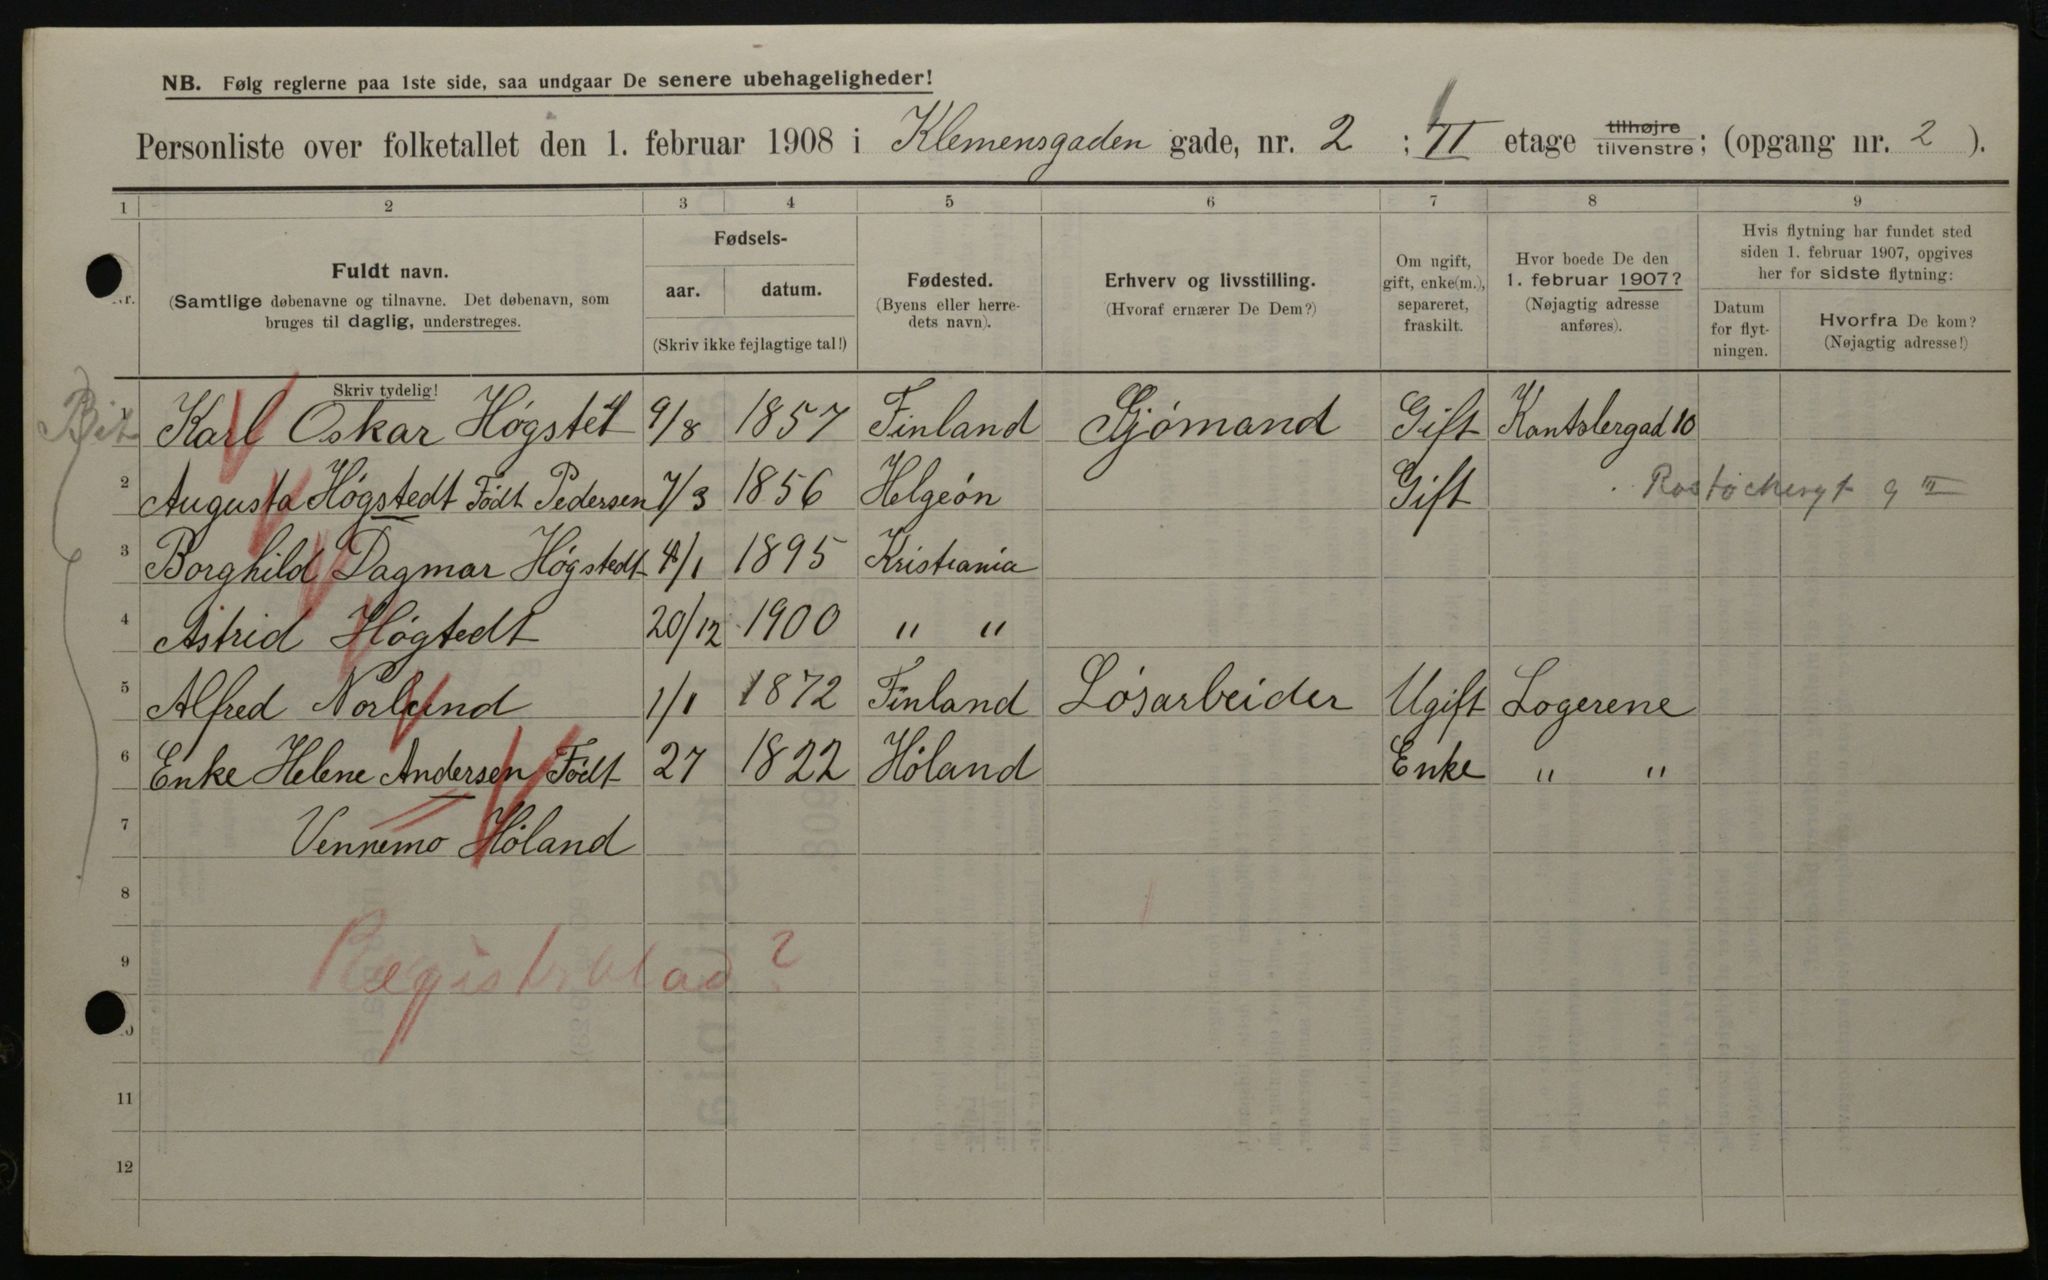 NB. Følg reglerne paa 1ste side, saa undgaar De senere ubehageligheder!
Personliste over folketallet den 1. februar 1908 i Klemensgaden gade, nr. 2 ; II etage tilhøjre tilvenstre ; (opgang nr. 2 ).
1 2 3 4 5 6 7 8 9
Nr.
Fuldt navn.
(Samtlige døbenavne og tilnavne. Det døbenavn, som
bruges til daglig, understreges.
Skriv tydelig!
Fødsels-
aar. datum.
(Skriv ikke fejlagtige tal!)
Fødested.
(Byens eller herre-
dets navn).
Erhverv og livsstilling.
(Hvoraf ernærer De Dem?)
Om ugift,
gift, enke(m.),
separeret,
fraskilt.
Hvor boede De den
1. februar 1907?
(Nøjagtig adresse
anføres).
Hvis flytning har fundet sted
siden 1. februar 1907, opgives
her for sidste flytning:
Datum
for flyt-
ningen.
Hvorfra De kom?
(Nøjagtig adresse!)
1 Karl Oskar Høgstet 9/8 1857 Finland Sjömand Gift Kantslergad 10
2 Augusta Høgstedt Födt Pedersen 7/3 1856 Helgeön Gift 9 III
3 Borghild Dagmar Høgstedt 4/1 1895 Kristiania
4 Astrid Høgtedt 20/12 1900 " "
5 Alfred Norlund 1/1 1872 Finland Lösarbeider Ugift Logerene
6 Enke Helene Andersen Födt 27 1822 Höland Enke " "
7 Vennemo Höland
8
9 Registerblad?
10
11
12